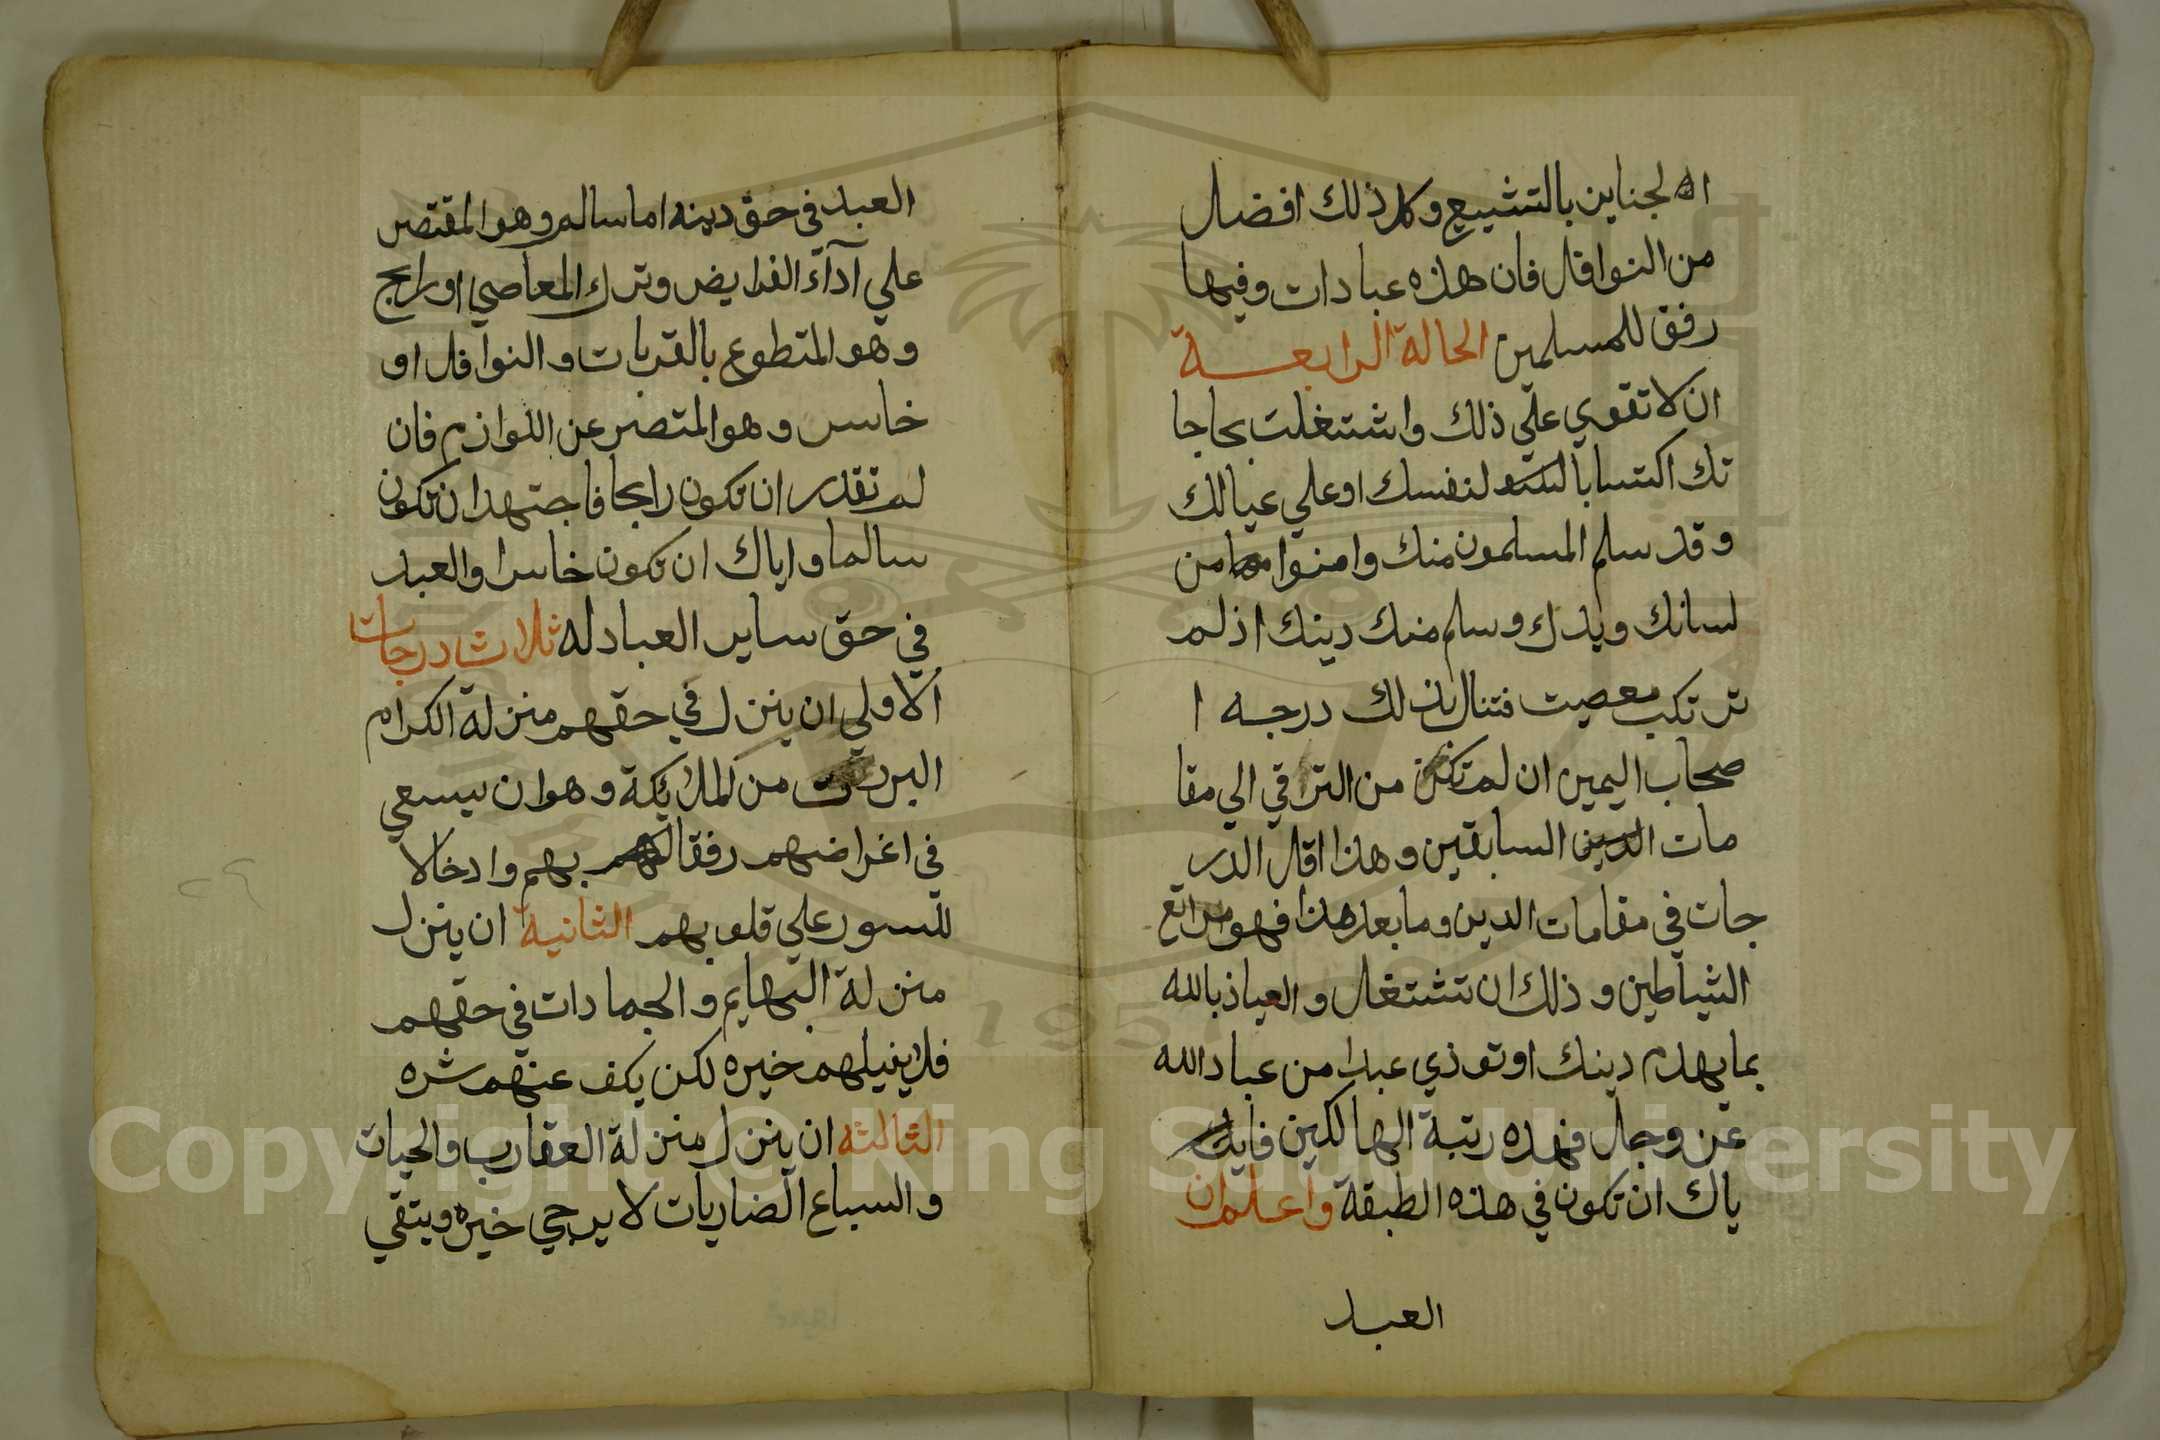 الجناين بالتشييع وكل ذلك افضل
من النوافل فان هذه عبادات وفيها
رفق للمسلمين الحالة الرابعة
ان لا تقوي علي ذلك واشتغلت بحاجا
تك اكتسابا لنفسك او علي عيالك
وقد سلم المسلمون منك وامنوا من
لسانك ويدك وسلم منك دينك اذ لم
ترتكب معصيت فتنال بذلك درجه ا
صحاب اليمين ان لم تكن من التراقي الي مقا
مات السابقين وهذا اقل الدر
جات في مقامات الدين وما بعد هذا فهو مراتع
الشياطين وذلك ان تشتغل والعياذ بالله
بما يهدم دينك او توذي عبدا من عباد الله
عز وجل فهذه رتبة الهالكين فايك
ياك ان تكون في هذه الطبقة واعلم ان
العبد
العبد في حق دينه اما سالم وهو المقتصر
علي آدآء الفرايض وترك المعاصي او رابح
وهو المتطوع بالقربات والنوافل او
خاسر وهو المتصر عن اللوازم فان
لم تقدر ان تكون رابحا فاجتهد ان تكون
سالما واياك ان تكون خاسرا والعبد
في حق ساير العباد له ثلاث درجات
الاولي ان ينزل في حقهم منزلة الكرام
البررة من الملايكة وهو ان يسعي
في اغراضهم رفقا بهم وادخالا
للسور علي قلوبهم الثانية ان ينزل
منزلة البهايم والجمادات في حقهم
فلا ينيلهم خيره لكن يكف عنهم شره
الثالثه ان ينزل منزلة العقارب والحيات
والسباع الضاريات لا يرجي خيره ويتقي
Copyright © King Saud University
1957